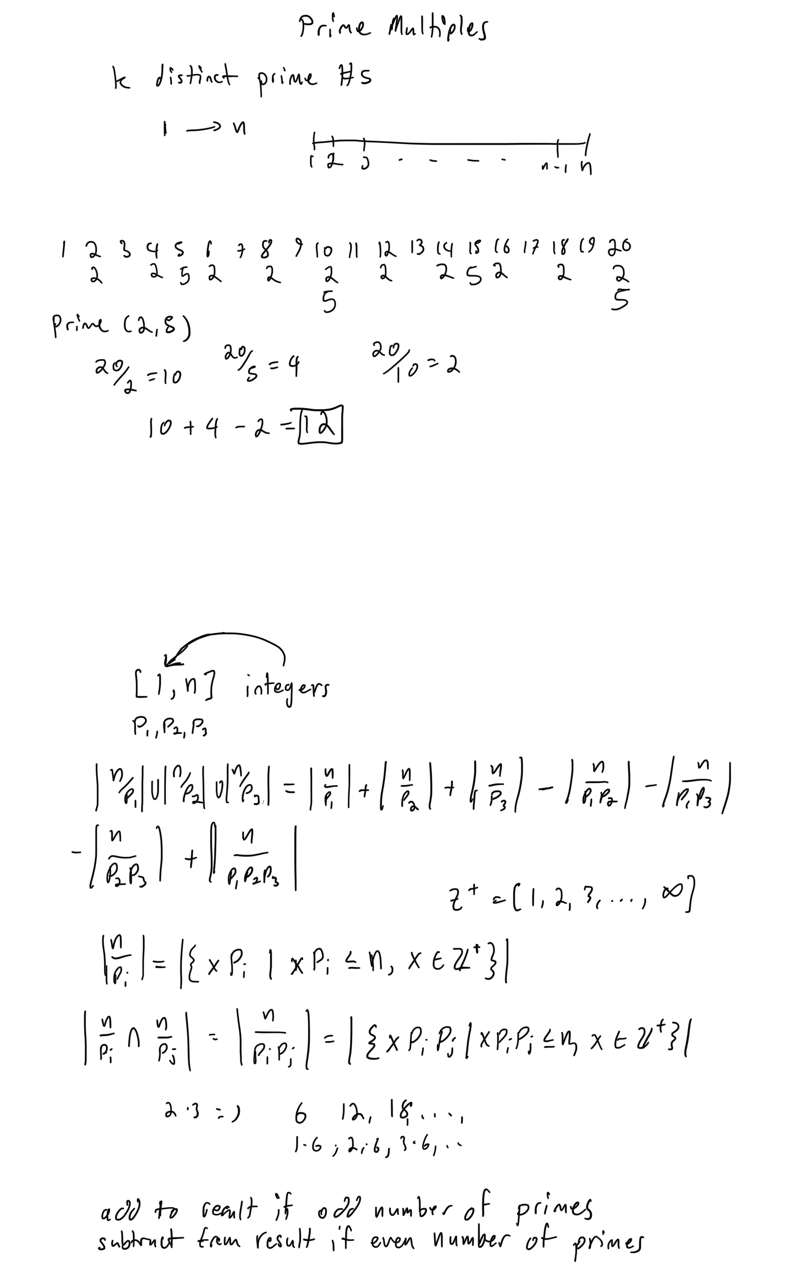 Prime Multiples
k distinct prime #s
1 → n
1 2 3 . - - . n-1 n
1 2 3 4 5 6 7 8 9 10 11 12 13 14 15 16 17 18 19 20
2 2 5 2 2 2 2 2 5 2 2 2
5 5
Prime (2,5)
20/2 = 10 20/5 = 4 20/10 = 2
10 + 4 - 2 = 12
[1, n] integers
P₁, P₂, P₃
|n/P₁| U |n/P₂| U |n/P₃| = |n/P₁| + |n/P₂| + |n/P₃| - |n/P₁P₂| - |n/P₁P₃|
- |n/P₂P₃| + |n/P₁P₂P₃|
Z⁺ = [1, 2, 3, ..., ∞]
|n/Pᵢ| = |{xPᵢ | xPᵢ ≤ n, x ∈ Z⁺}|
|n/Pᵢ ∩ n/Pⱼ| = |n/PᵢPⱼ| = |{xPᵢPⱼ | xPᵢPⱼ ≤ n, x ∈ Z⁺}|
2·3 =) 6 12, 18, ...,
1·6, 2·6, 3·6, ..
add to result if odd number of primes
subtract from result if even number of primes